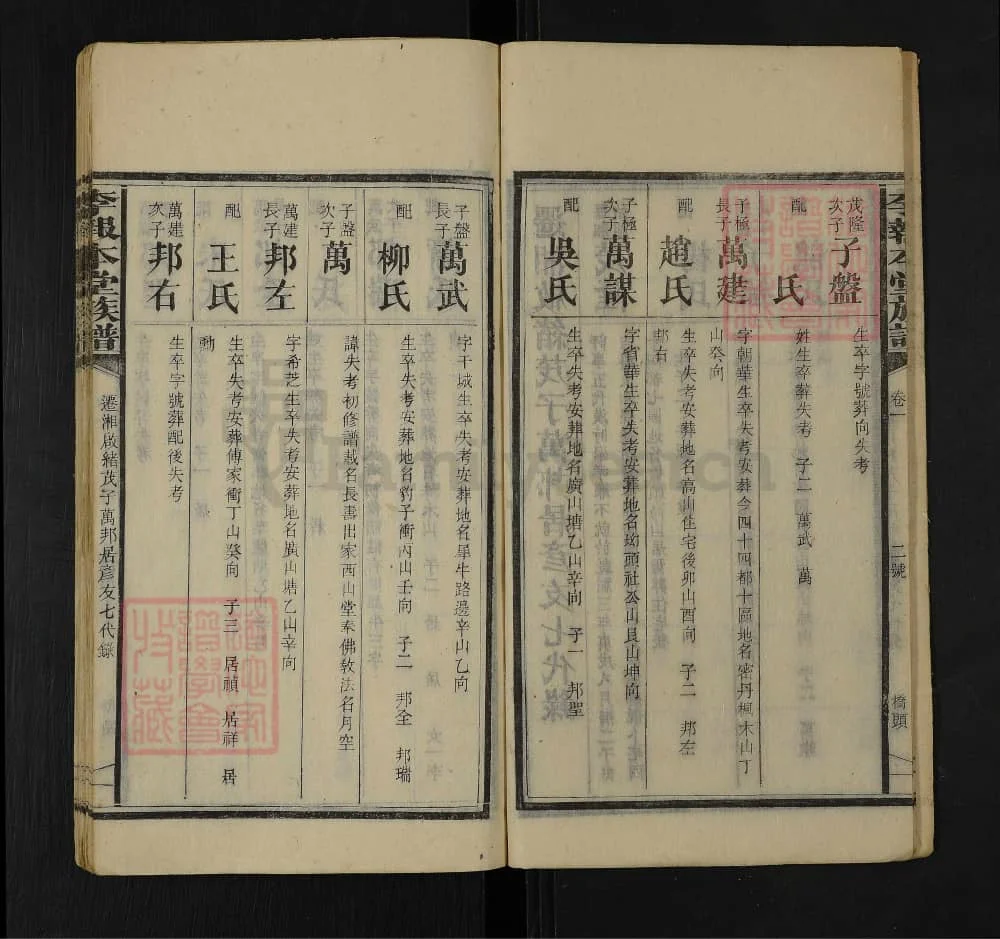 李報本堂族譜
卷一
二號
橋頭
茂隆次子
子盤
生卒字號葬向失考
配
氏
姓生卒葬失考 子二 萬武 萬
子極長子
萬建
字朝華生卒失考安葬今四十四都十區地名密丹楓木山丁
山癸向
配
趙氏
生卒失考安葬地名高山住宅後卯山酉向 子二 邦左
邦右
子極次子
萬謀
字省華生卒失考安葬地名坳頭社公山艮山坤向
配
吳氏
生卒失考安葬地名廣山塘乙山辛向 子一 邦聖
子盤長子
萬武
字干城生卒失考安葬地名犀牛路邊辛山乙向
配
柳氏
生卒失考安葬地名豹子衝丙山壬向 子二 邦全 邦瑞
子盤次子
萬
諱失考初修譜載名長壽出家西山堂奉佛敎法名月空
萬建長子
邦左
字希芝生卒失考安葬地名廣山塘乙山辛向
配
王氏
生卒失考安葬傅家衝丁山癸向 子三 居禎 居祥 居
勳
萬建次子
邦右
生卒字號葬配後失考
李報本堂族譜
遷湘啟緒茂子萬邦居彥友七代錄